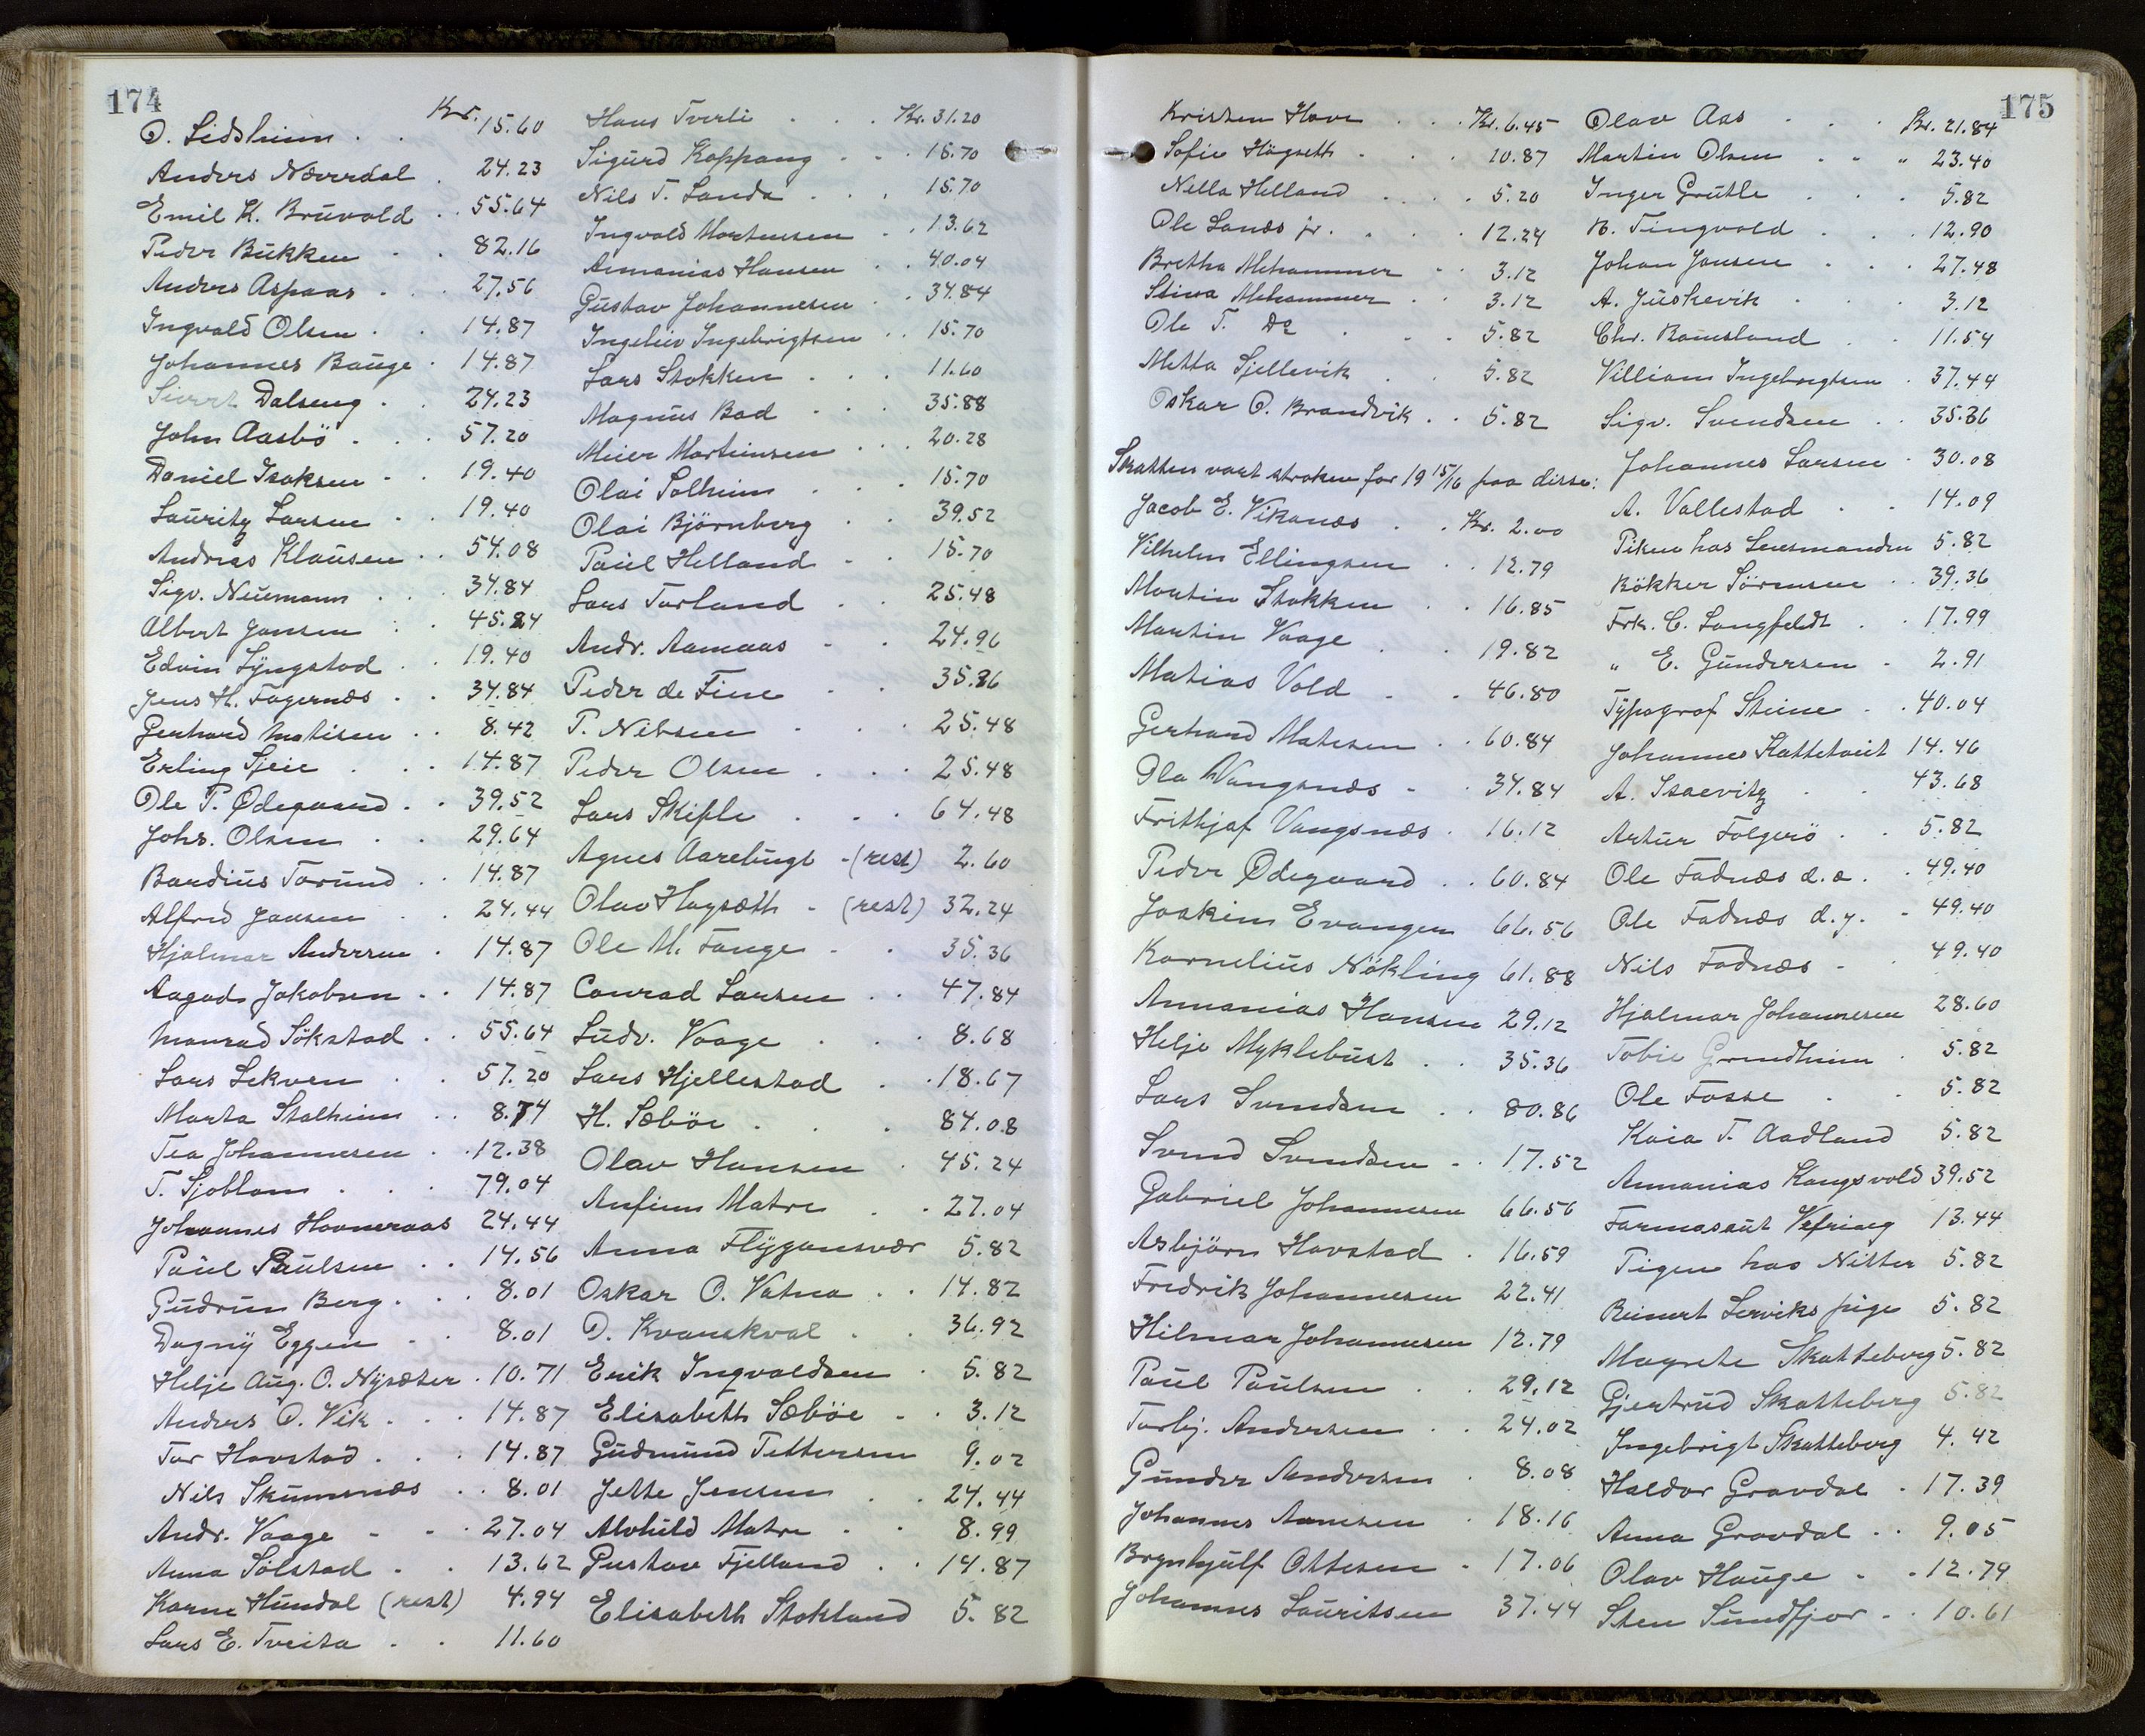 174
O. Lidsheim . . Kr. 15.60
Anders Næverdal . 24.23
Emil K. Bruvold . . 55.64
Peder Bukken . . 82.16
Anders Aspaas . . 27.56
Ingvald Olsen . . 14.87
Johannes Bauge . 14.87
Sivert Dalseng . . 24.23
John Aasbö . . . 57.20
Daniel Isaksen . . 19.40
Lauritz Larsen . . 19.40
Andreas Klausen . . 54.08
Sigv. Neumann . . 34.84
Albert Jansen . . 45.24
Edvin Lyngstad . . 19.40
Jens H. Fagernæs . . 34.84
Gerhard Matisen . . 8.42
Erling Sjeie . . . 14.87
Ole P. Ødegaard . . 39.52
Johs. Olsen . . 29.64
Bardius Torund . . 14.87
Alfred Jansen . . 24.44
Hjalmar Andersen . 14.87
Aagads Jakobsen . . 14.87
Monrad Sökstad . . 55.64
Lars Lekven . . 57.20
Marta Stalheim . . 8.74
Tea Johannesen . . 12.38
T. Sjoblom . . . 79.04
Johannes Hovneraas 24.44
Paul Paulsen . . 14.56
Gudrun Berg . . . 8.01
Dagny Eggen . . 8.01
Helje Aug. O. Nysæter . 10.71
Anders O. Vik . . . 14.87
Tor Havstad . . . 14.87
Nils Skumsnæs . . 8.01
Andr. Vaage - - . 27.04
Anna Solstad . . 13.62
Karne Hundal (rest) 4.94
Lars E. Tveita . . 11.60
Hans Tverli . . . Kr. 31.20
Sigurd Koppang . . . 15.70
Nils T. Landa . . . 15.70
Ingvald Mortensen . . 13.62
Annanias Hansen . . 40.04
Gustav Johannesen . . 34.84
Ingeliev Ingebrigtsen . . 15.70
Lars Stokken . . . 11.60
Magnus Bad . . . 35.88
Meier Morteinsen . . . 20.28
Olai Solheim . . . 15.70
Olai Björnberg . . 39.52
Paul Helland . . 15.70
Lars Torland . . 25.48
Andr. Aamaas . . 24.96
Peder de Fine . . 35.36
P. Nilsen . . . 25.48
Peder Olsen . . . 25.48
Lars Skifle . . . 64.48
Agnes Aarelingt - (rest) 2.60
Olav Hogsæth - (rest) 32.24
Ole M. Fange . . 35.36
Conrad Larsen . . 47.84
Ludv. Vaage . . . 8.68
Lars Hjellestad . . 18.67
H. Sæböe . . . 84.08
Olav Hansen . 45.24
Anfinn Matre . . 27.04
Anna Flygansvær 5.82
Oskar O. Vatna . . 14.82
O. Kvanskval . . 36.92
Erik Ingvaldsen . 5.82
Elisabeth Sæböe . . 3.12
Gudmund Pettersen 9.02
Jette Jensen . . 24.44
Alvhild Matre . . 8.99
Gustav Fjelland . . 14.87
Elisabeth Stokland 5.82
175
Kristen Hove . . . Kr. 6.45
Sofie Högseth . . . 10.87
Nella Helland . . . . 5.20
Ole Landa jr. . . . 12.24
Bretha Mehammer . . 3.12
Stina Mehammer . . 3.12
Ole T. Do . . . 5.82
Metta Sjellevik . . 5.82
Oskar O. Brandvik . . 5.82
Skatten vart stroken for 19 15/16 paa disse:
Jacob E. Vikanæs . . Kr. 2.00
Vilhelm Ellingsen . . 12.79
Martin Stokken . . 16.85
Martin Vaage . . 19.82
Matias Vold . . 46.80
Gerhard Matisen . . 60.84
Ola Vangsnæs . . 34.84
Frithjof Vangsnæs . 16.12
Peder Ødegaard . . 60.84
Joakim Evangen 66.56
Kornelius Nökling 61.88
Annanias Hansen 29.12
Helje Myklebust . . 35.36
Lars Svendsen . . 80.86
Svend Svendsen . . 17.52
Gabriel Johannesen 66.56
Asbjörn Havstad . 16.59
Fredrik Johannesen 22.41
Hilmar Johannesen 12.79
Paul Paulsen . . 29.12
Torbj. Andersen . . 24.02
Gunder Andersen . 8.08
Johannes Aanesen . 18.16
Brynhjulf Ottesen . 17.06
Johannes Lauritsen 37.44
Olav Aas . . . Kr. 21.84
Martin Olsen . . " 23.40
Inger Grutle . . . 5.82
B. Tingvold . . . 12.90
Johan Jansen . . . 27.48
A. Juskevik . . . 3.12
Chr. Baustand . . 11.54
Villiam Ingebrigtsen . 37.44
Sigv. Svendsen . . 35.36
Johannes Larsen . 30.08
A. Vallestad . . 14.09
Piken hos Lensmanden 5.82
Bökker Sörensen . . 39.36
Frk. C. Langfeldt . . 17.99
" E. Gundersen . 2.91
Typograf Steine . . 40.04
Johannes Kattetveit 14.46
A. Isaevitz . . 43.68
Artur Folgerö . . 5.82
Ole Fadnæs d.e. . 49.40
Ole Fadnæs d.y. . 49.40
Nils Fadnæs . . 49.40
Hjalmar Johannesen 28.60
Tobie Grendheim . 5.82
Ole Fosse . . 5.82
Kaia T. Aadland 5.82
Annanias Kangsvold 39.52
Farmasaut Vefring 13.44
Pigen hos Nitter 5.82
Reinert Lerviks pige 5.82
Magrete Skatteberg 5.82
Gjertrud Skatteberg 5.82
Ingebrigt Skatteberg 4.42
Haldor Gravdal . 17.39
Anna Gravdal . . 9.05
Olav Hauge . . 12.79
Sten Sundfjor . . 10.61